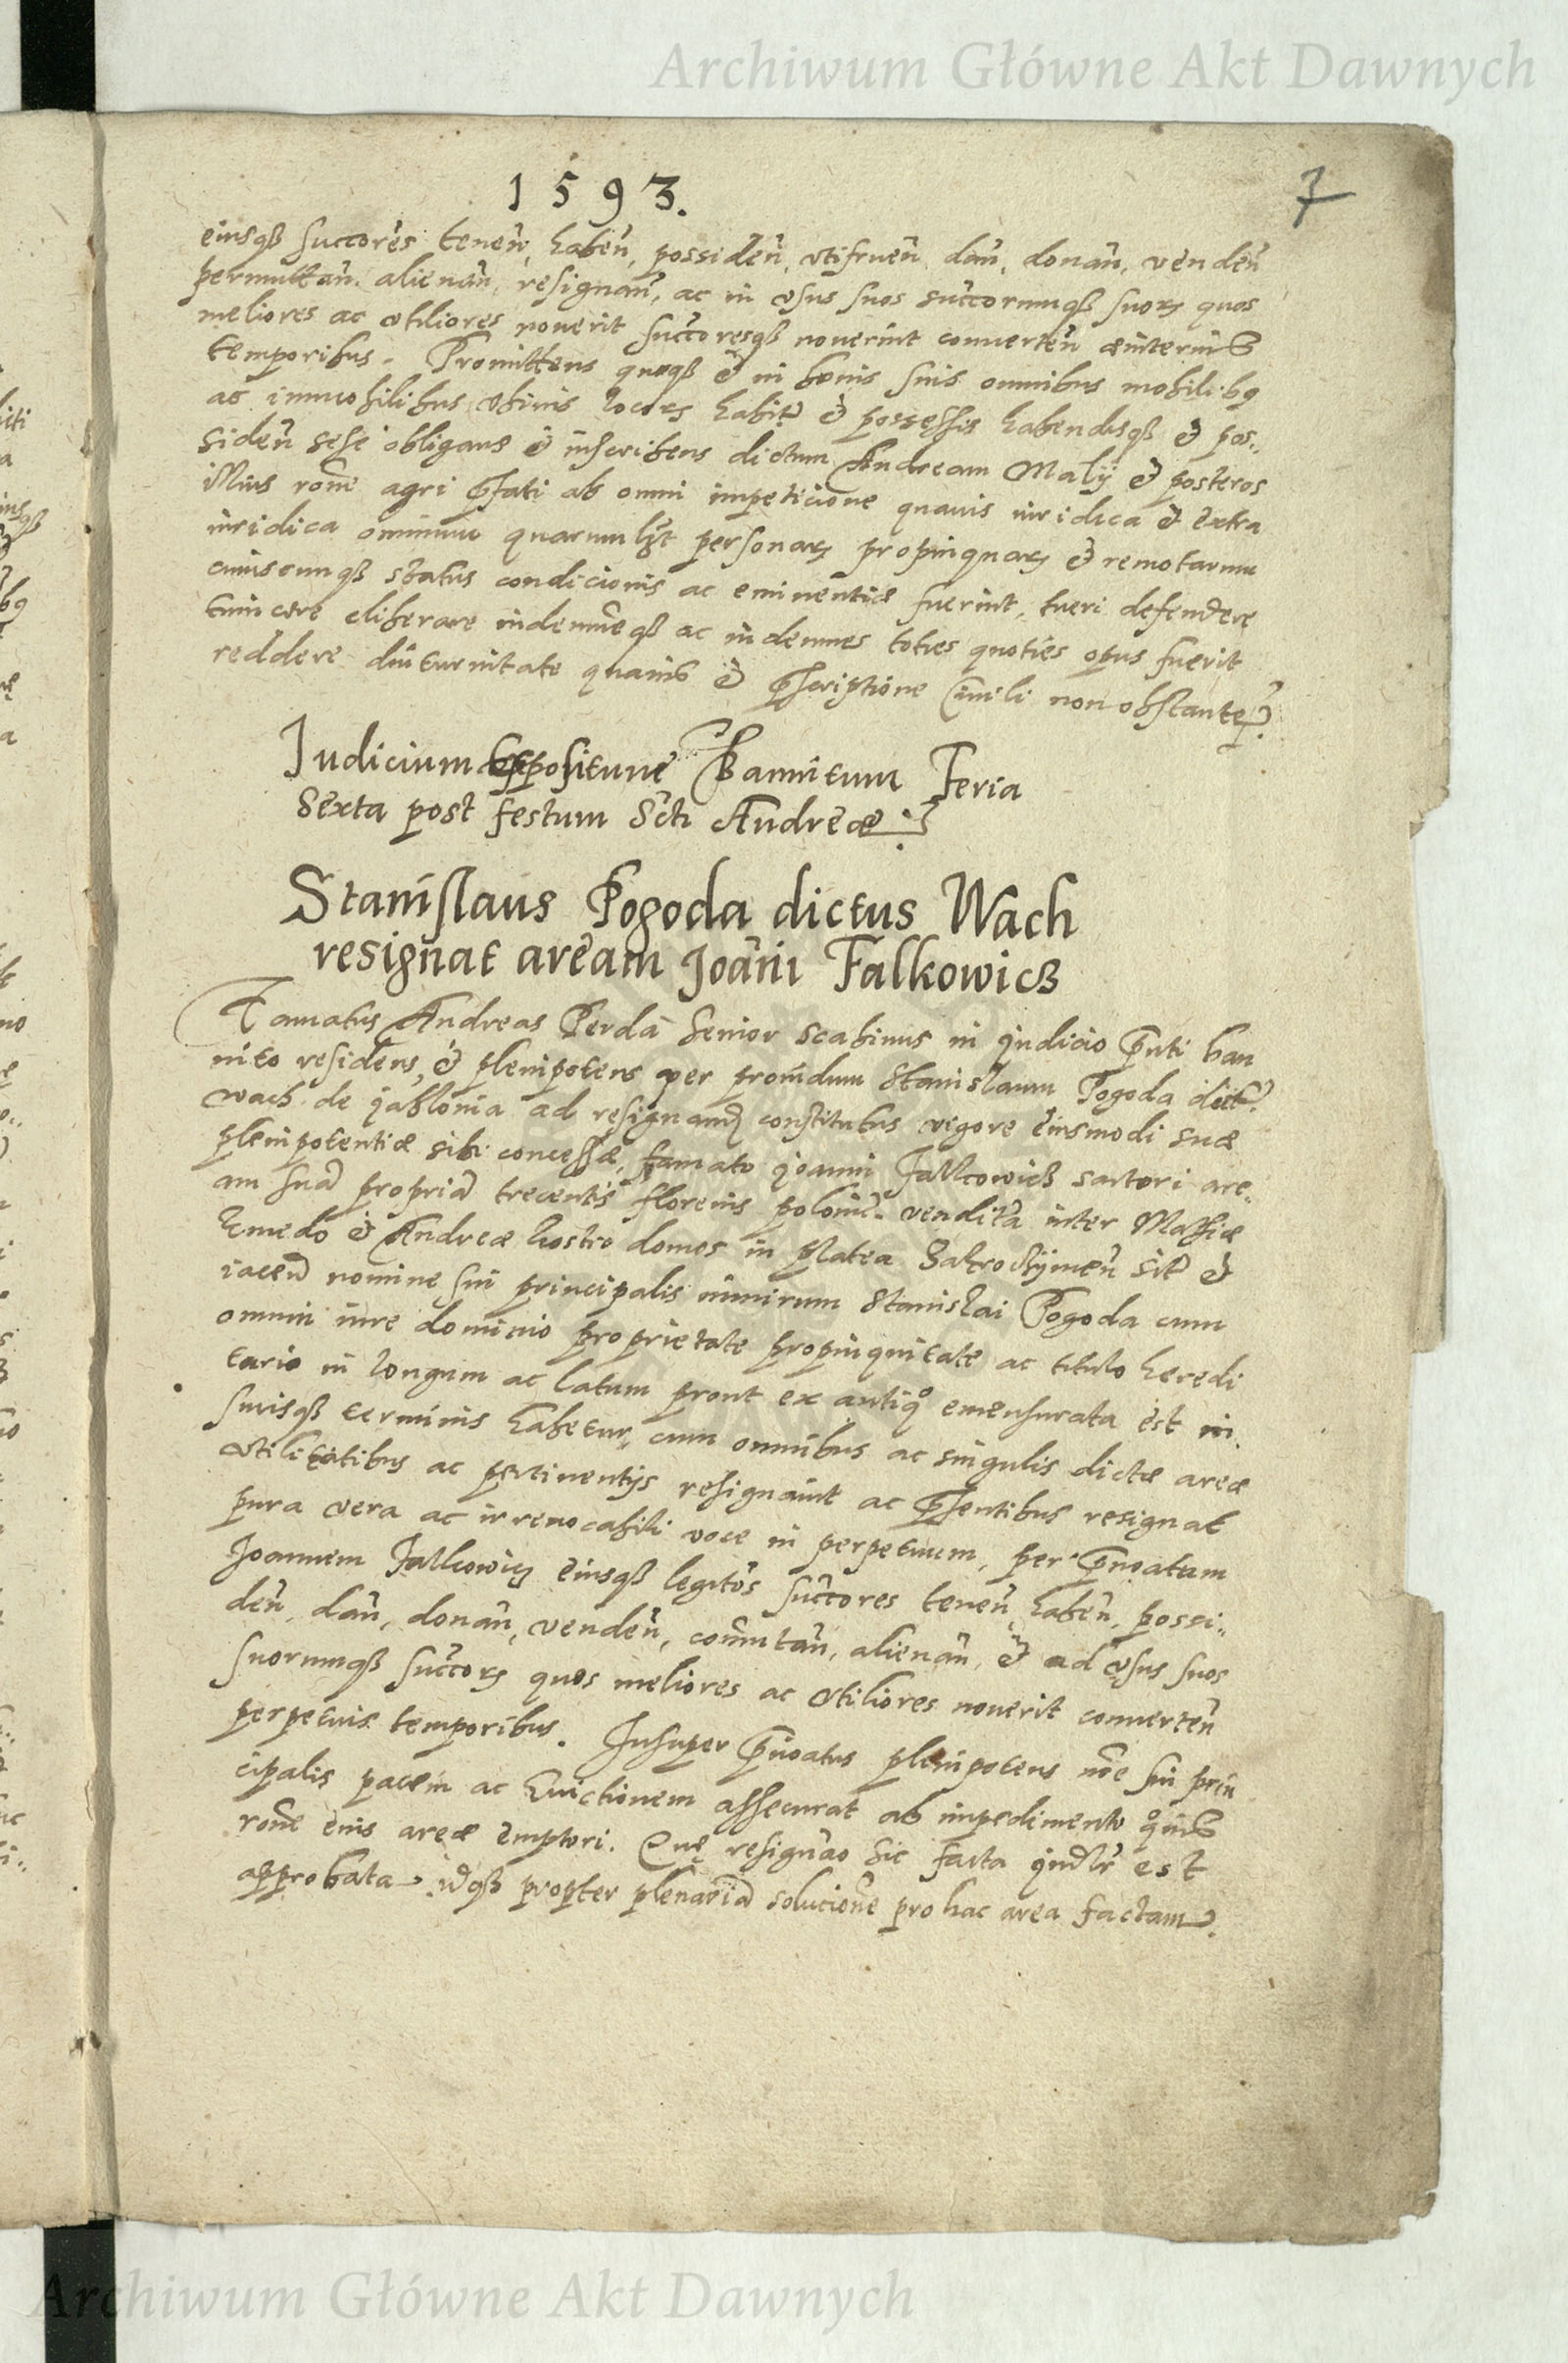 Archiwum Główne Akt Dawnych
1593.
7
eiusqß succōres tenen̄, haben̄, possiden̄, vtifruen̄ dan̄, donan̄, venden̄
permuttan̄. alienan̄, resignan̄, ac in vsus suos succorumqß suoꝝ quos
meliores ac vtiliores nouerit succoresqß nouerint conuerten̄
temporibus. Promittens quoqß & in bonis suis omnibus mobilibꝯ
ac immobilibus vbiuis locoꝝ habit̄ & possessis habendisqß & pos..
siden̄ sese obligans & inscribens dictum Andream Malÿ & posteros
illius rōne agri p̄fati ab omni impeticione quauis iuridica & extra
iuridica omnium quarumlꝫt personaꝝ propinquaꝝ & remotarum
cuiuscunqß status condicionis ac eminentiæ fuerint, tueri defendere
euincere eliberare indemnēqß ac indemnes toties quoties opus fuerit
reddere diuturnitate quauis & p̄scriptione ciuili non obstante
Iudicium Expositum Bannitum Feria
Sexta post festum Scti Andreæ
Stanislaus Pogoda dictus Wach
resignat aream Joāni Falkowicß
Famatus Andreas Perda Senior scabinus in judicio p̄nti ban
nito residens, & plenipotens per prouidum Stanislaum Pogoda dict̄
wach de jablonia ad resignand̄ constitutus vigore eiusmodi suæ
plenipotentiæ sibi concessæ, famato joanni Falkowicß sartori are..
am suā propriā trecentis florenis polonic. venditā inter Mathiæ
Kmedo & Andreæ domos in platea Zakroczÿmen̄ sit̄ &
iacen̄ nomine sui principalis nimirum Stanislai Pogoda cum
omni iure dominio proprietate propinquitate ac titulo heredi
tario in longum ac latum prout ex antiqͦ emensurata est in
suisqß terminis habetur, cum omnibus ac singulis dictæ areæ
vtilitatibus ac pertinentijs resignauit ac p̄sentibus resignat
pura vera ac irreuocabili voce in perpetuum, per p̄noatum
Joannem Falkowicz eiusqß legitōs succores tenen̄, haben̄, possi..
den̄, dan̄, donan̄, venden̄, com̄utan̄, alienan̄, & ad vsus suos
suorumqß succoꝝ quos meliores ac vtiliores nouerit conuerten̄
perpetuis temporibus. Insuper p̄noatus plenipotens nōe sui prin
cipalis pacem ac Euictionem assecurat ab impedimento
rōne eius areæ emptori. Quę resignāo sic facta judl̄r est
approbata idqß propter plenariā solucionē pro hac area factam.
Archiwum Główne Akt Dawnych